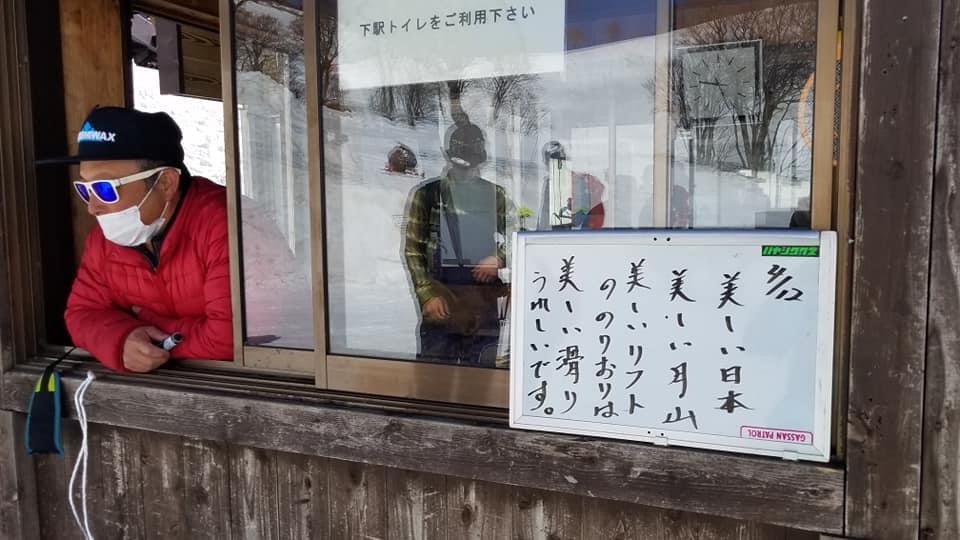 下駅トイレをご利用下さい
4/12
美しい日本
美しい月山
美しいリフト
ののりおりは
美しい滑り
うれしいです。
GASSAN PATROL